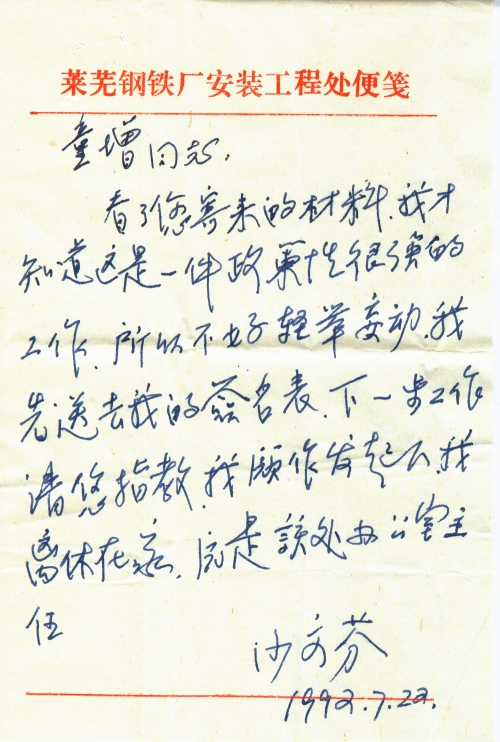 莱芜钢铁厂安装工程处便笺
童增同志,
看了您寄来的材料.我才
知道这是一件政策性很强的
工作.所以不好轻举妄动.我
先送去我的签名表.下一步工作
请您指教.我愿作发起人.我
离休在家.原是该处办公室主
任
沙文芬
1992.7.22.